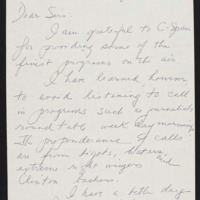 Dear Sirs:
I am grateful to C-Span
for providing some of the
finest programs on the air
I have learned however
to avoid listening to call
in programs such as journalists
round table week day mornings
The preponderance of calls
are from bigots, haters,
extreme right wingers and
Clinton bashers.
I have a